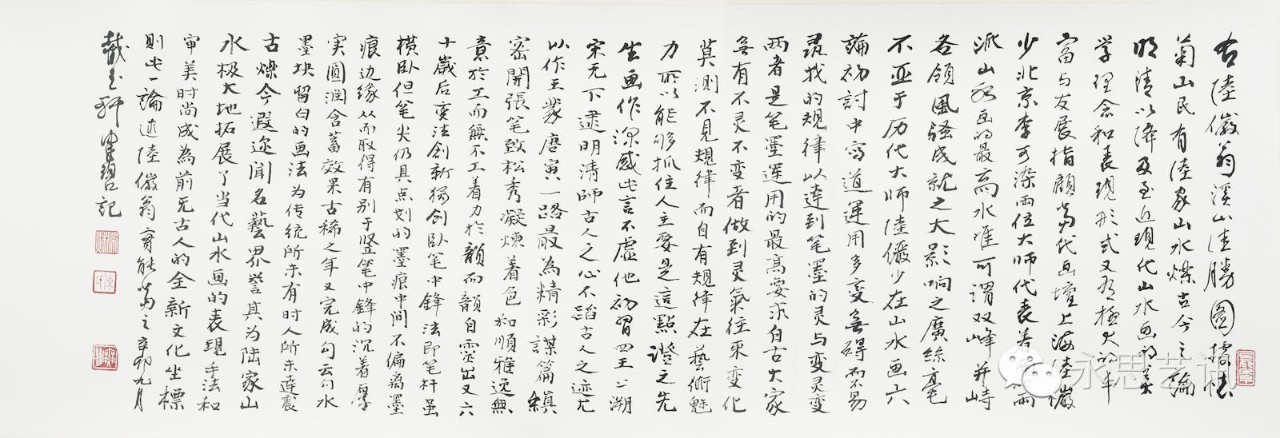 右陸儼翁溪山佳勝圖
菊山民有陸家山水爍古今之論
明清以降及至近現代山水画的美
学理念和表現形式又有極大的丰
富与发展指顧當代画壇上海陸儼
少北京李可染两位大师代表着
派山水画的最高水准可謂双峰并峙
各領風骚成就之大影响之廣絲毫
不亚于历代大师陸儼少在山水画六
論初討中写道運用多变無碍而不易
尋找的規律以達到笔墨的灵与变灵变
两者是笔墨運用的最高要求自古大家
無有不灵不变者做到灵氣往来变化
莫測不見規律而自有規律在藝術魅
力所以能够抓住人主要是這點證之先
生画作深感此言不虚他初習四王上溯
宋元下逮明清師古人之心不蹈古人之迹尤
以作王蒙唐寅一路最為精彩謀篇縝
密開張笔致松秀凝煉着色和順雅逸無
意於工而無不工着力於韻而韻自靈出又六
十歲后变法創新獨創卧笔中鋒法即笔杆虽
横卧但笔尖仍具点划的墨痕中间不偏痕墨
痕边缘从而取得有别于竖笔中鋒的沉着厚
实圓润含蓄效果古稀之年又完成勾云勾水
墨块留白的画法为传统所未有时人所未達震
古爍今遐迩聞名藝界譽其为陆家山
水极大地拓展了当代山水画的表現手法和
审美时尚成為前无古人的全新文化坐標
則此一論述陸儼翁實能當之辛卯九月
記
永思艺讯